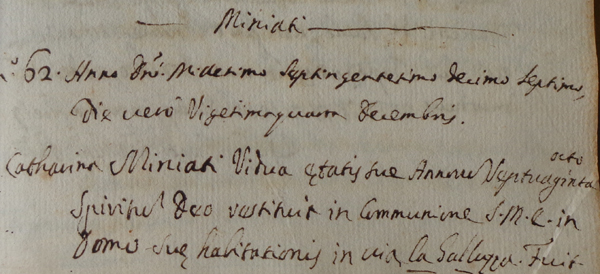 Miniati
N.° 62. Anno Dñi. Millesimo Septingentesimo decimo septimo,
Die vero Vigesimaquarta Decembris.
octo
Catharina Miniati Vidua ętatis suę Annorū Septuaginta
Spiritū Deo restituit in Communione S. M. E. in
Domo suę habitationis in via la Galluzza. Fuit